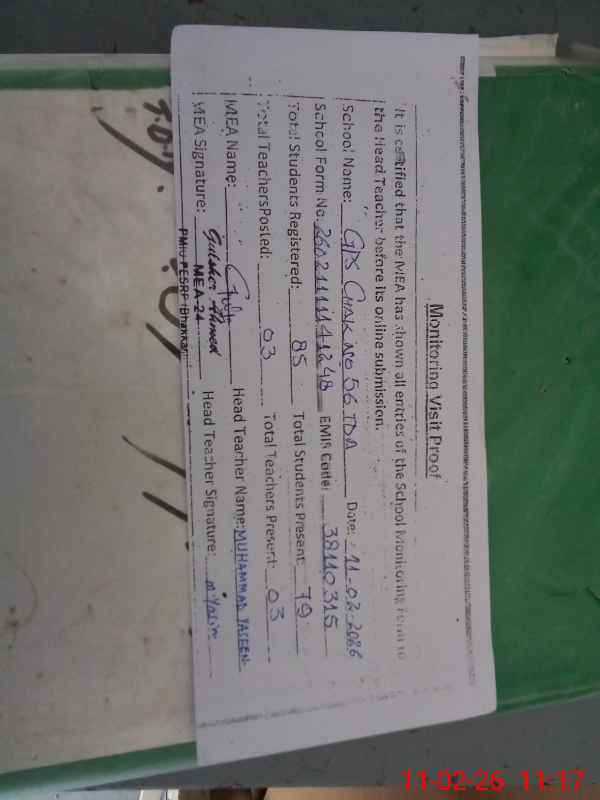 Monitoring Visit Proof
It is certified that the MEA has shown all entries of the School Monitoring Form to
the Head Teacher before its online submission.
School Name: GPS CHAK NO 56 TDA Date: 11-02-2026
School Form No: 26021111141248 EMIS Code: 38110315
Total Students Registered: 85 Total Students Present: 79
Total Teachers Posted: 03 Total Teachers Present: 03
MEA Name: Head Teacher Name: MUHAMMAD YASEEN
MEA Signature: Gulsher Ahmed Head Teacher Signature: M.Yasin
MEA-24
PMIU-PESRP (Bhakkar)
11-02-26 11:17